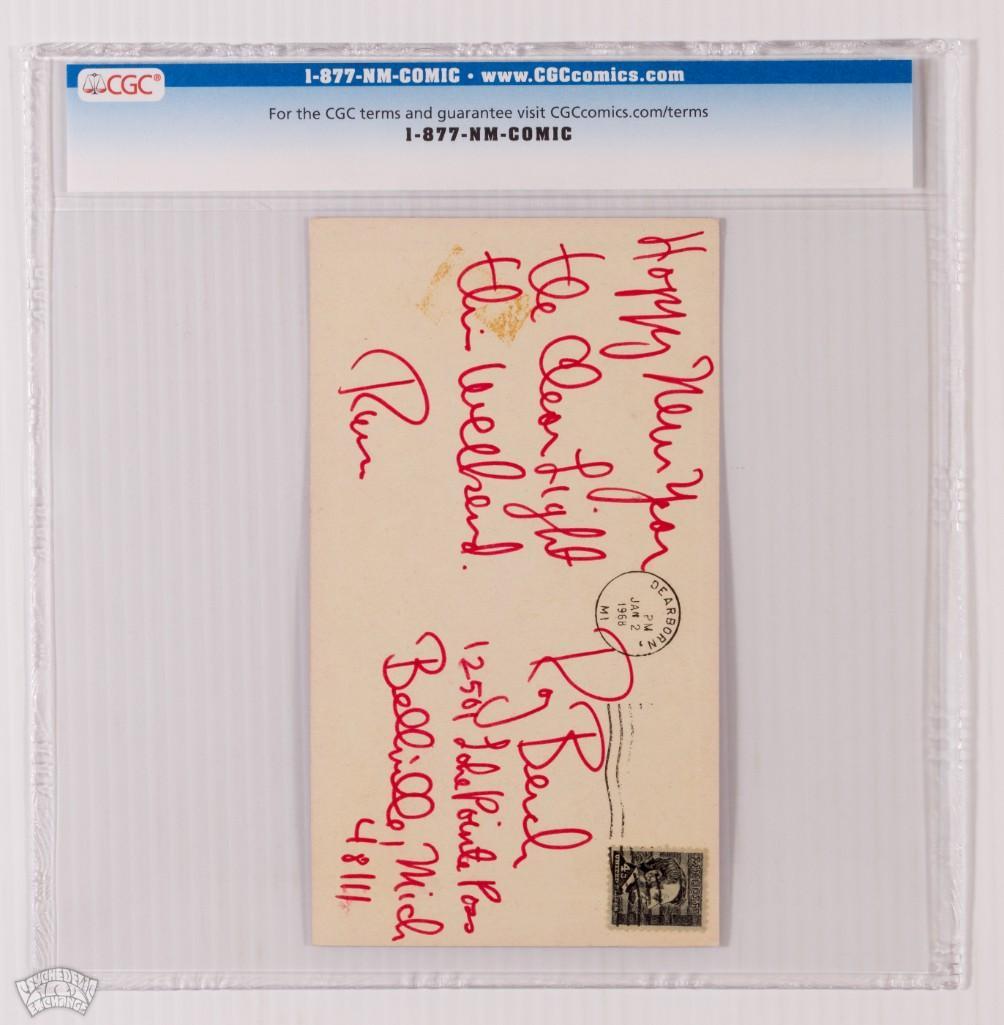 CGC®
1-877-NM-COMIC • www.CGCcomics.com
For the CGC terms and guarantee visit CGCcomics.com/terms
1-877-NM-COMIC
Happy New Year
the Clear Light
this weekend.
Russ
DEARBORN
PM
JAN 2
1968
MI
Roy Bench
12501 Lake Pointe Pass
Belleville, Mich
48111
4¢
PSYCHEDELIC
EXCHANGE